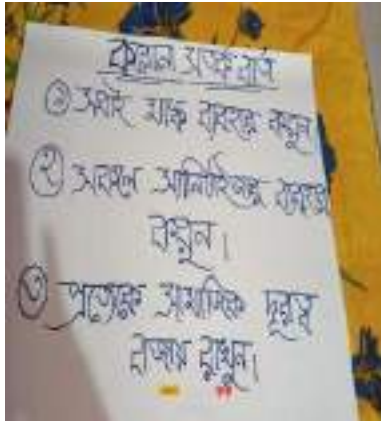 করোনা সতর্ক বার্তা
① সবাই মাস্ক ব্যবহার করুন
② সকলে স্যানিটাইজার ব্যবহার
করুন।
③ প্রত্যেকে সামাজিক দূরত্ব
বজায় রাখুন।